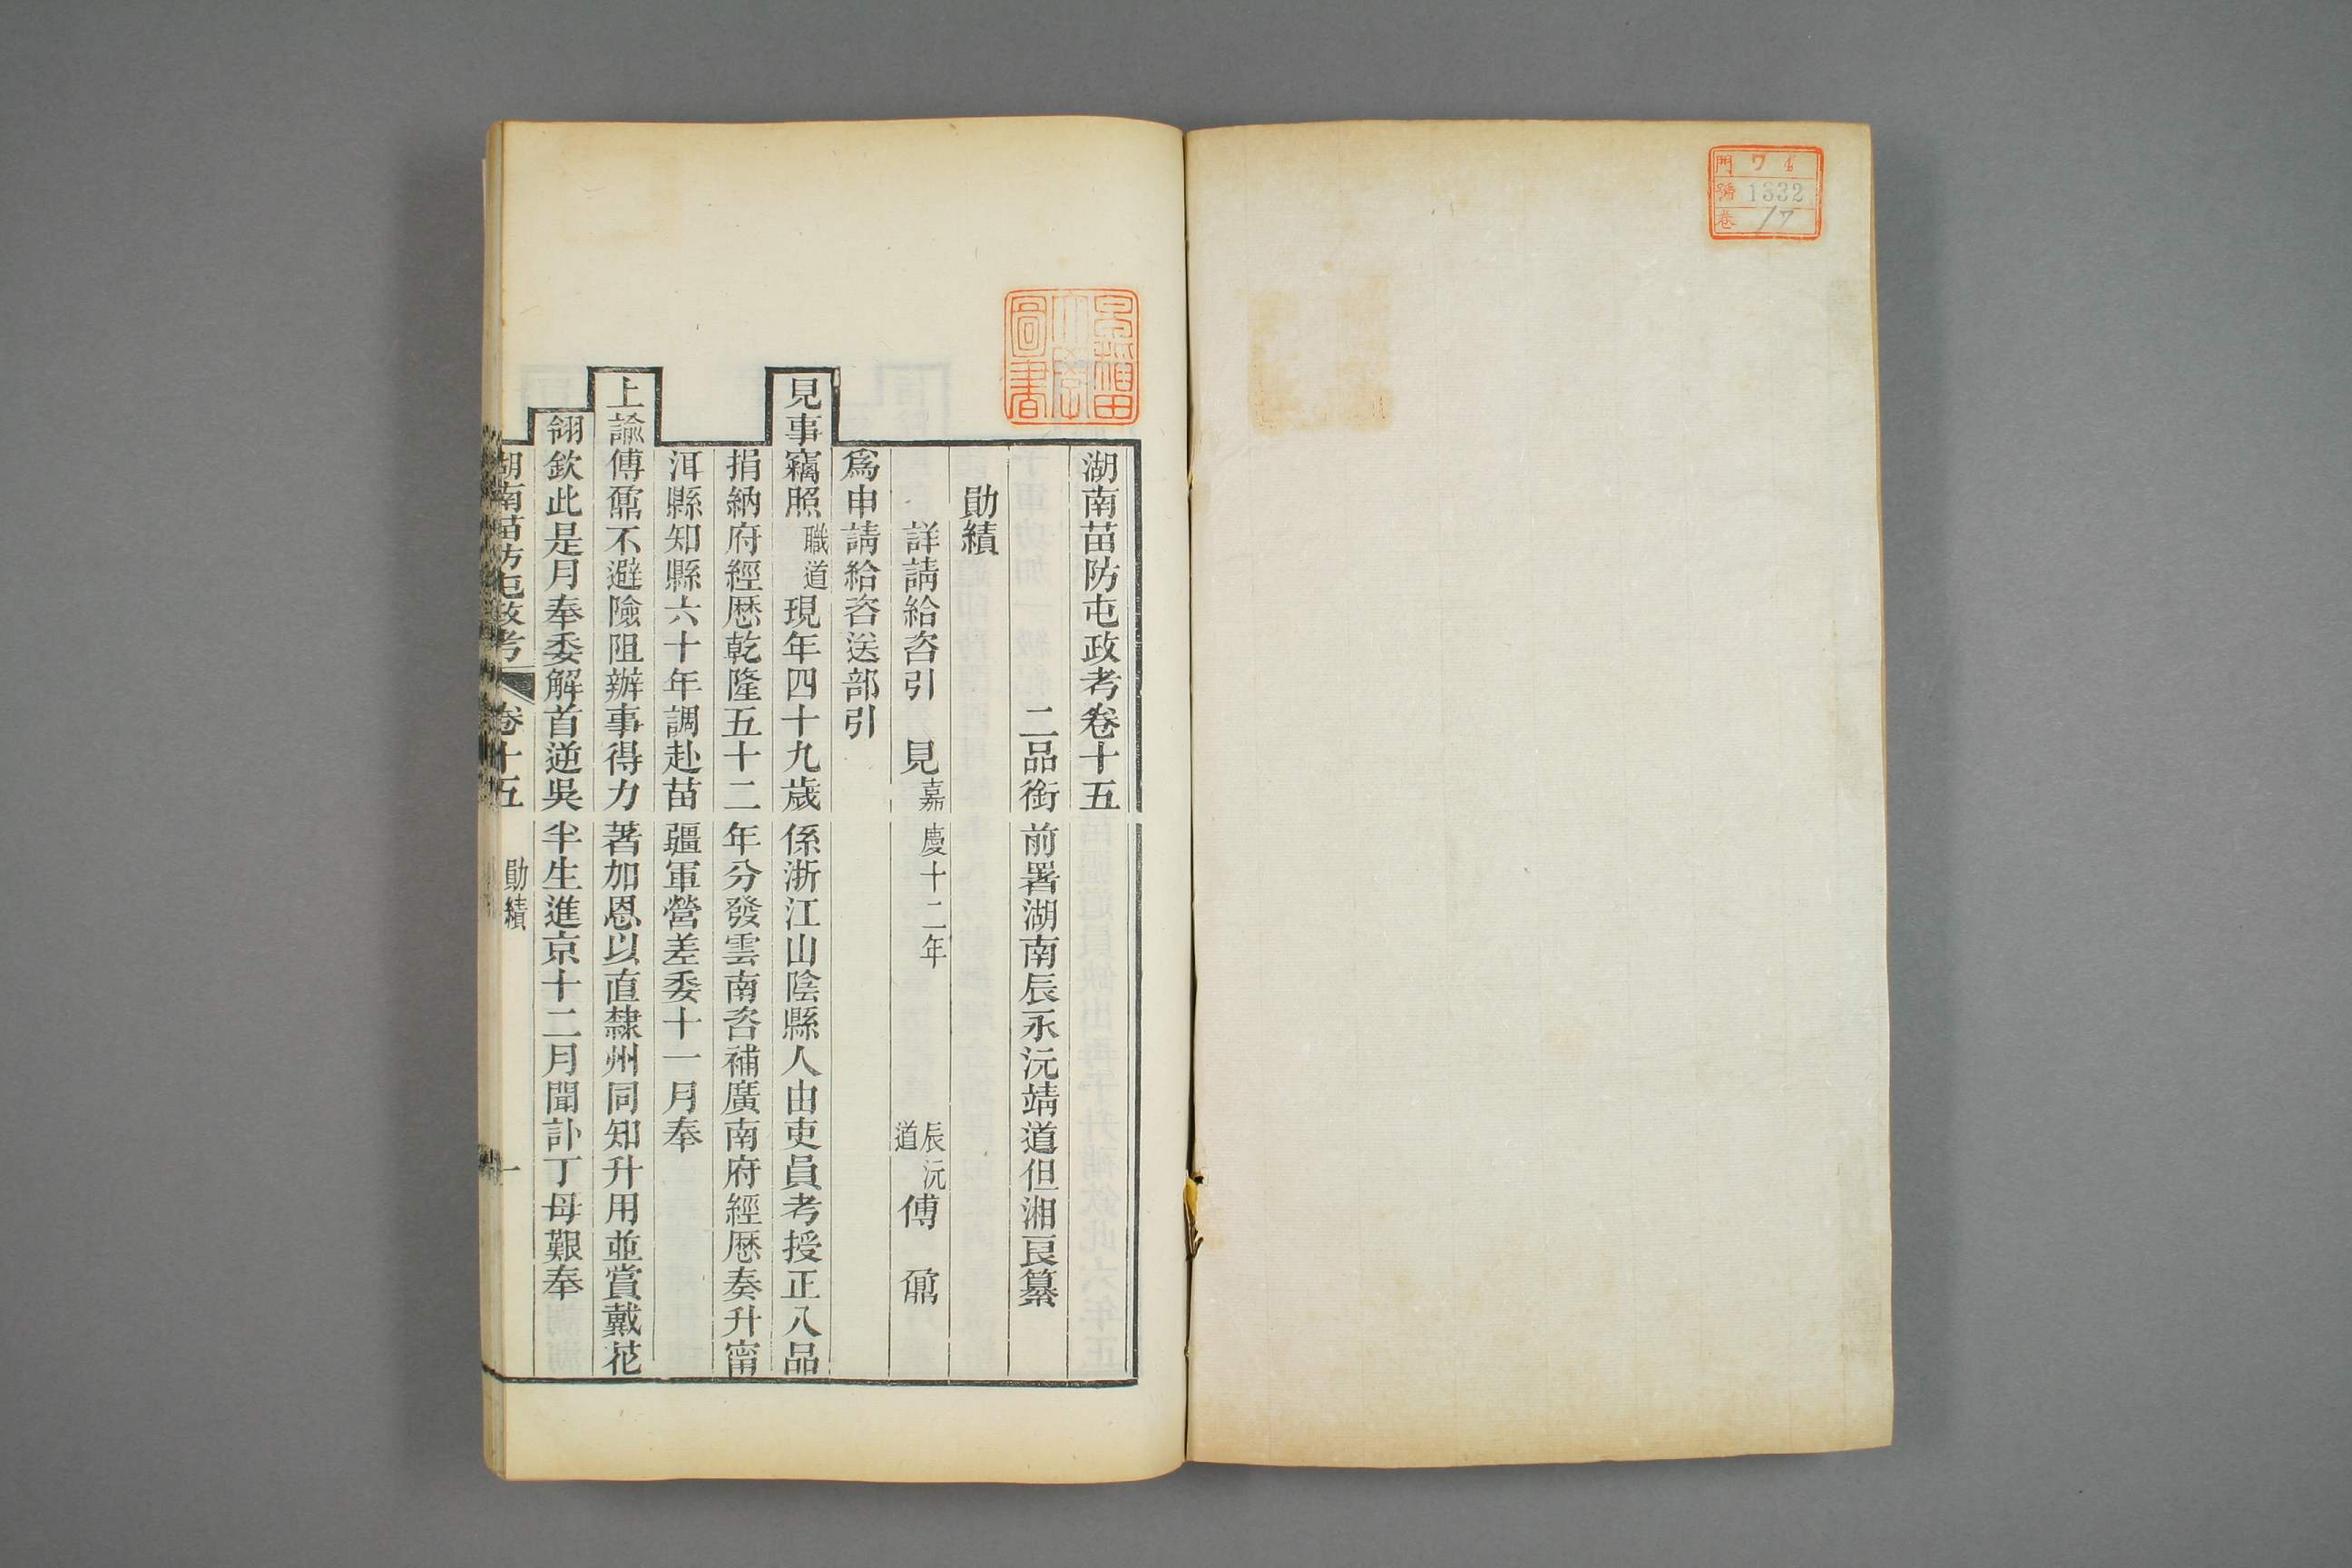 門 ワ 4
號 1332
卷 17
早稲田大學圖書
湖南苗防屯政考卷十五
二品銜前署湖南辰永沅靖道但湘良纂
勛績
詳請給咨引 見嘉慶十二年 辰沅道傅鼐
爲申請給咨送部引
見事竊照職道現年四十九歲係浙江山陰縣人由吏員考授正八品
捐納府經歷乾隆五十二年分發雲南咨補廣南府經歷奏升甯
洱縣知縣六十年調赴苗疆軍營差委十一月奉
上諭傅鼐不避險阻辦事得力著加恩以直隸州同知升用並賞戴花
翎欽此是月奉委解首逆吳半生進京十二月聞訃丁母艱奉
湖南苗防屯政考 卷十五 勛績 一